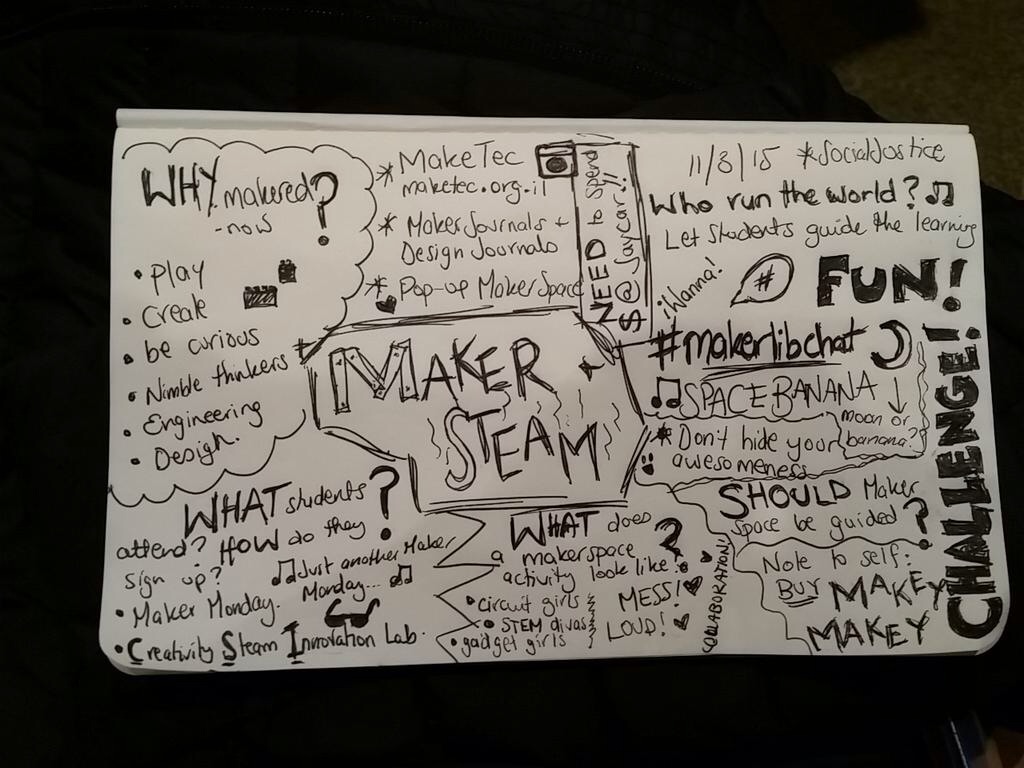 WHY makered?
-now
• play
• Create
• be curious
• Nimble thinkers
• Engineering
• Design.
* MakeTec
maketec.org.il
* Maker Journals +
Design Journals
* Pop-up MakerSpace
NEED to spend
$@Jaycar!!
11/8/15 *SocialJustice
Who run the world?
Let students guide the learning
iWanna!
#
FUN!
CHALLENGE!
#makerlibchat
SPACEBANANA
moon or
banana?
* Don't hide your
awesomeness
MAKER
STEAM
WHAT students
attend? HOW do they
sign up?
Just another Maker
Monday...
• Maker Monday.
• Creativity Steam Innovation Lab.
WHAT does
a makerspace
activity look like?
• circuit girls
• STEM divas
• gadget girls
MESS!
LOUD!
COLLABORATION!
SHOULD Maker
space be guided?
Note to self:
BUY MAKEY
MAKEY